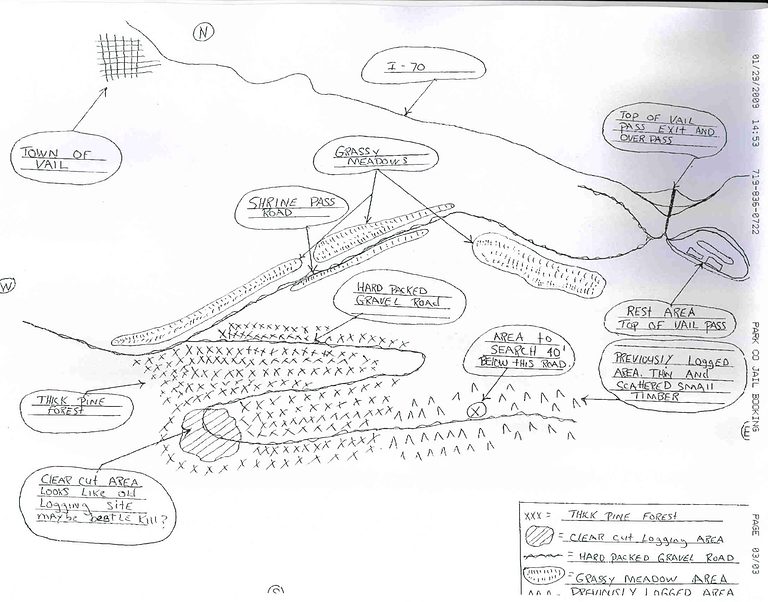 N
I-70
TOWN OF
VAIL
GRASSY
MEADOWS
TOP OF VAIL
PASS EXIT AND
OVER PASS
SHRINE PASS
ROAD
W
HARD PACKED
GRAVEL ROAD
AREA TO
SEARCH 40'
BELOW THIS ROAD
REST AREA
TOP OF VAIL PASS
PREVIOUSLY LOGGED
AREA. THIN AND
SCATERED SMALL
TIMBER
THICK PINE
FOREST
X
E
CLEAR CUT AREA
LOOKS LIKE OLD
LOGGING SITE
MAYBE BEATLE KILL?
XXX = THICK PINE FOREST
= CLEAR CUT LOGGING AREA
= HARD PACKED GRAVEL ROAD
= GRASSY MEADOW AREA
= PREVIOUSLY LOGGED AREA
01/29/2003 14:53 719-836-0722 PARK CO JAIL BOOKING PAGE 03/03